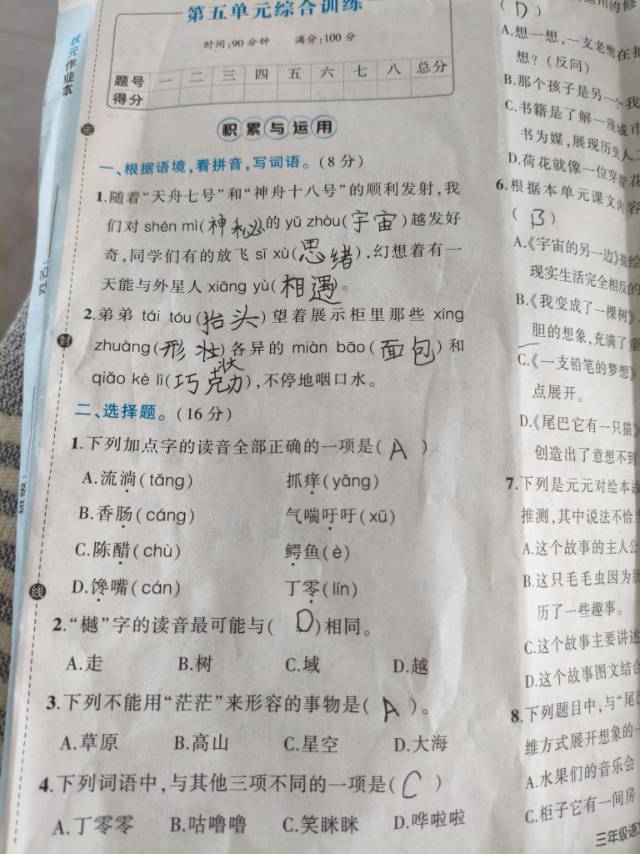 状元作业本
第五单元综合训练
时间:90分钟 满分:100分
题号 一 二 三 四 五 六 七 八 总分
得分
积累与运用
一、根据语境,看拼音,写词语。(8分)
1.随着“天舟七号”和“神舟十八号”的顺利发射,我
们对 shén mì(神秘)的 yǔ zhòu(宇宙)越发好
奇,同学们有的放飞 sī xù(思绪),幻想着有一
天能与外星人 xiāng yù(相遇)。
2.弟弟 tái tóu(抬头)望着展示柜里那些 xíng
zhuàng(形壮)各异的 miàn bāo(面包)和
状
qiǎo kè lì(巧克力),不停地咽口水。
二、选择题。(16分)
1.下列加点字的读音全部正确的一项是(A)
A.流淌(tǎng) 抓痒(yǎng)
B.香肠(cáng) 气喘吁吁(xū)
C.陈醋(chù) 鳄鱼(è)
D.馋嘴(cán) 丁零(lín)
2.“樾”字的读音最可能与(D)相同。
A.走 B.树 C.域 D.越
3.下列不能用“茫茫”来形容的事物是(A)。
A.草原 B.高山 C.星空 D.大海
4.下列词语中,与其他三项不同的一项是(C)
A.丁零零 B.咕噜噜 C.笑眯眯 D.哗啦啦
(D)
A.想一想,一支老憋在
想?(反问)
B.那个孩子是另一个我
C.书籍是了解一座城市
书为媒,展现历史人
D.荷花就像一位穿着花
6.根据本单元课文内容
(B)
A.《宇宙的另一边》描绘
现实生活完全相反的
B.《我变成了一棵树》
胆的想象,充满了童
C.《一支铅笔的梦想》
点展开。
D.《尾巴它有一只猫》
创造出了意想不到
7.下列是元元对绘本
推测,其中说法不恰当
A.这个故事的主人公
B.这只毛毛虫因为
历了一些趣事。
C.这个故事主要讲述
D.这个故事图文结合
8.下列题目中,与“尾
维方式展开想象的一
A.水果们的音乐会
C.柜子它有一间房
三年级语文